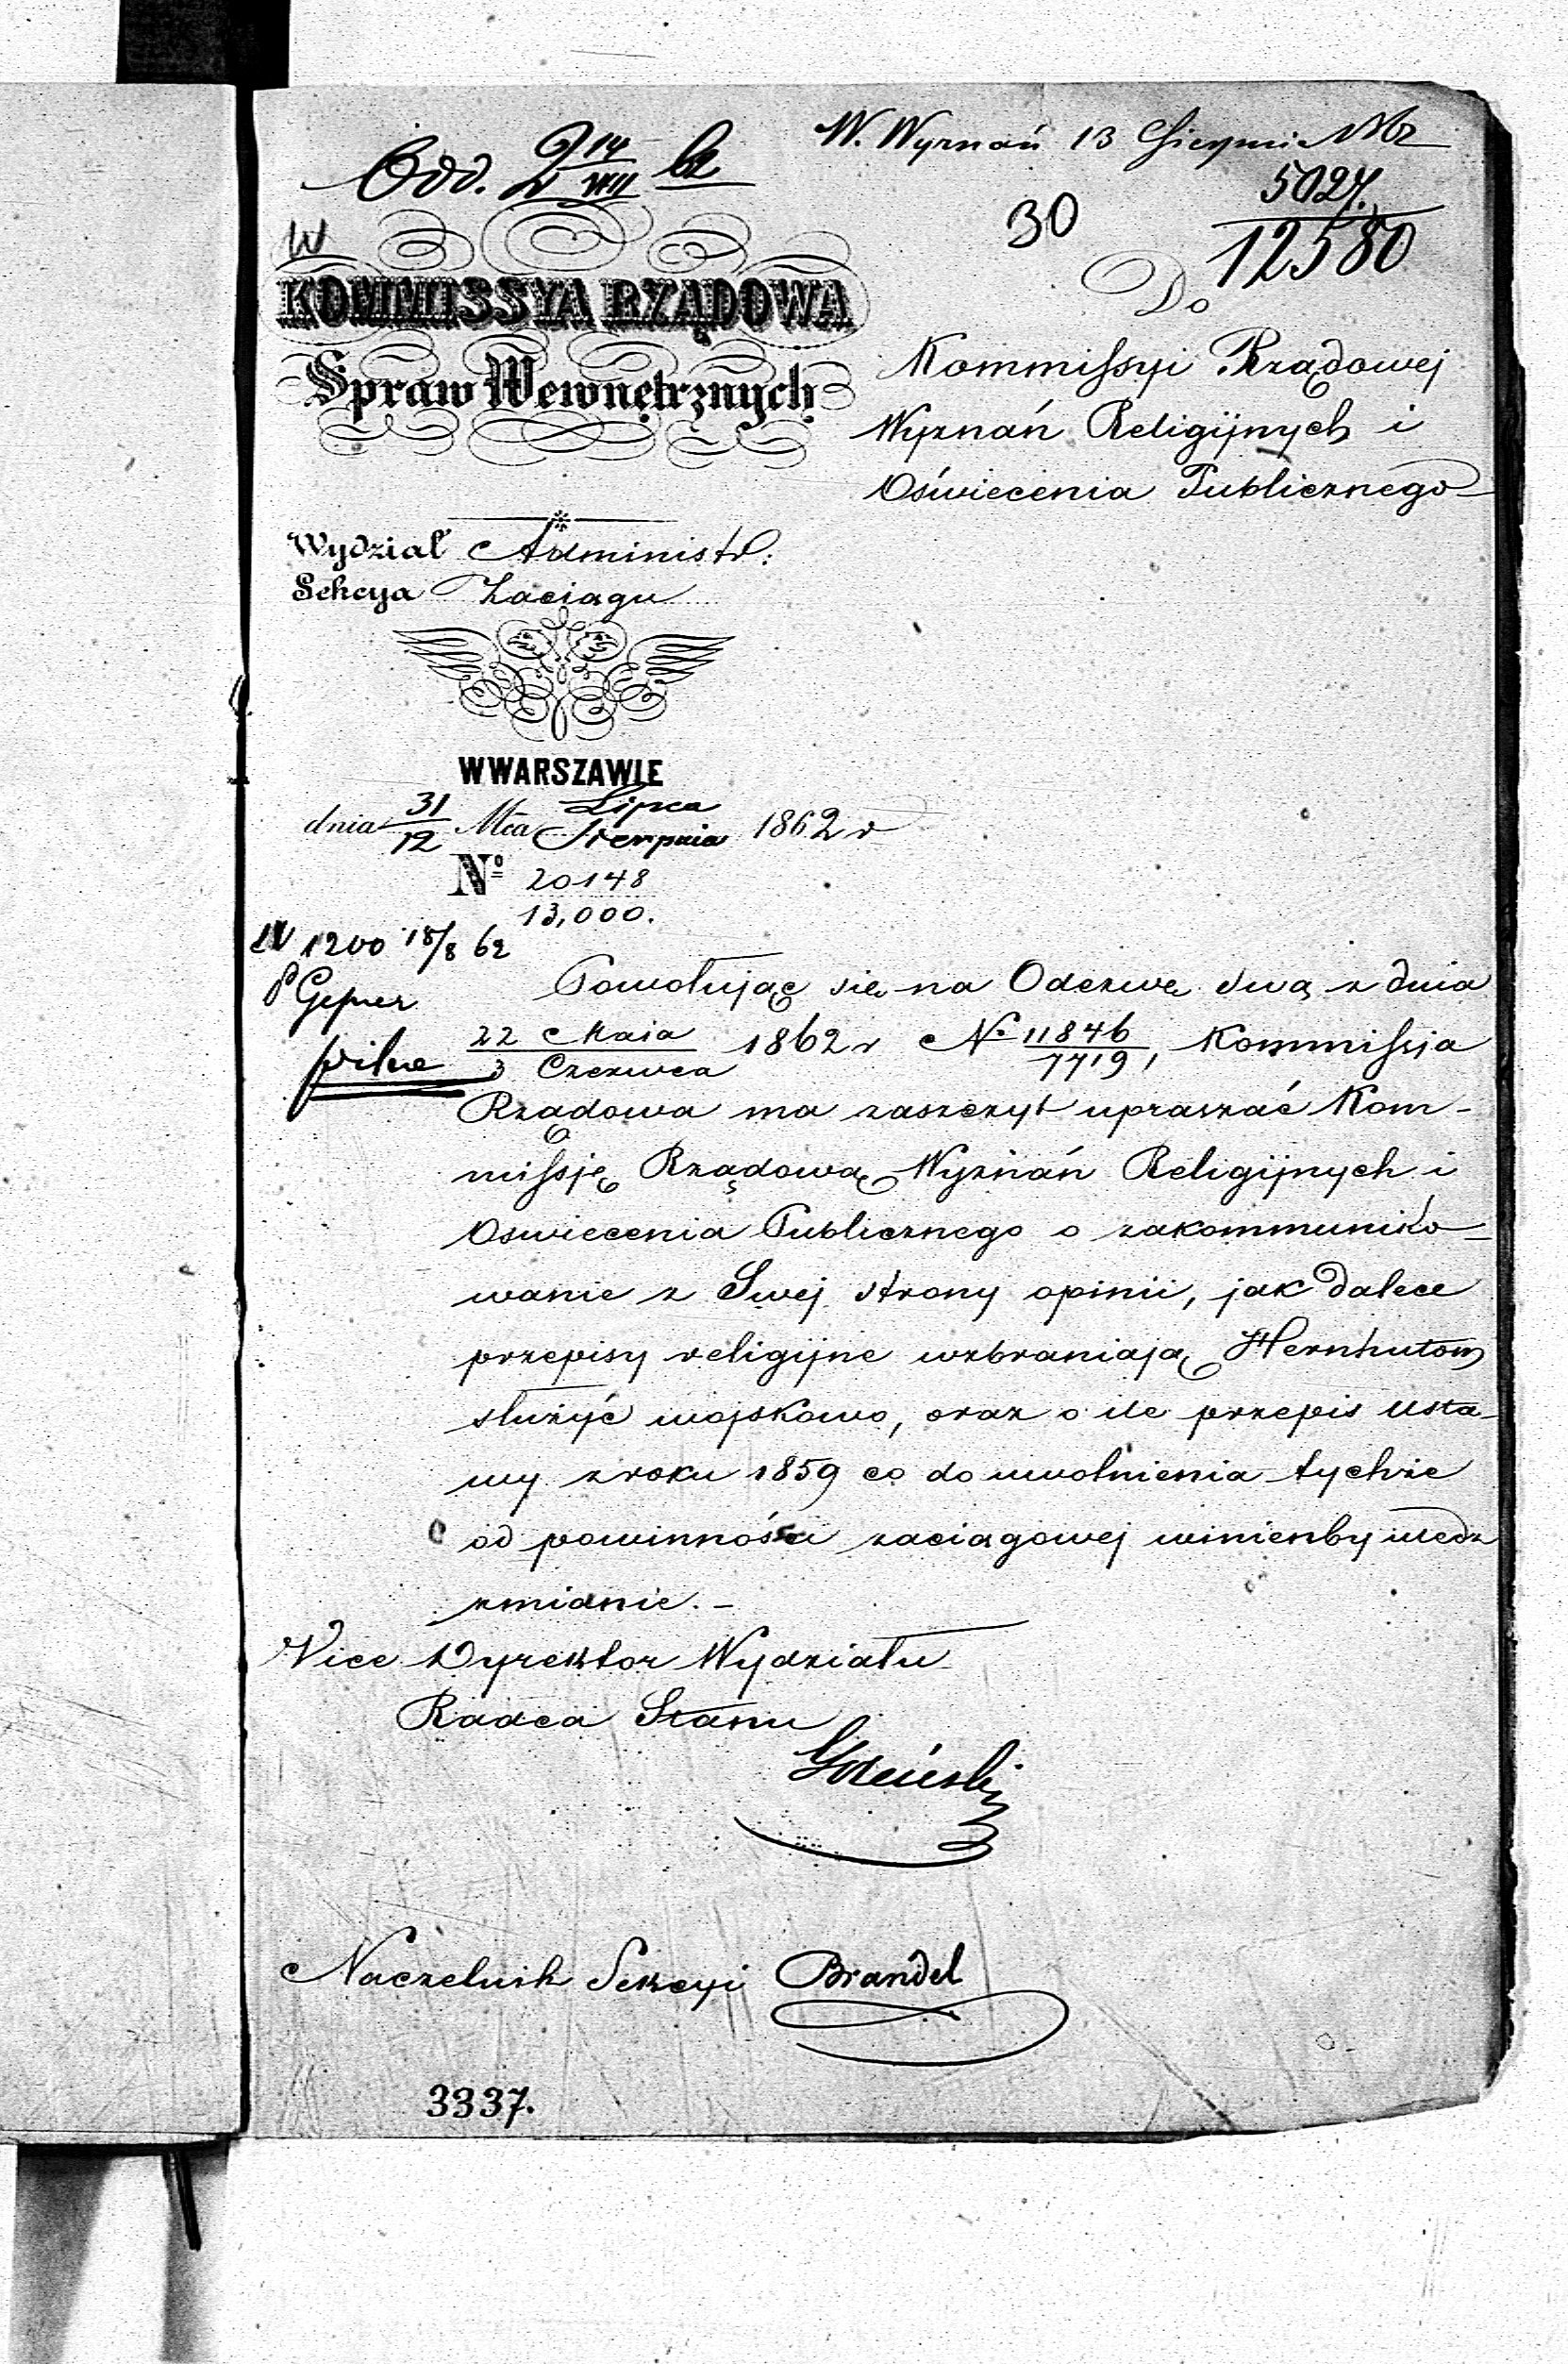 Odd. 2 14/VIII 62
W. Wyznań 13 Sierpnia
5027.
12580
30
W
KOMMISSYA RZĄDOWA
Spraw Wewnętrznych
Do
Kommissyi Rządowej
Wyznań Religijnych i
Oświecenia Publicznego
Wydział Administr:
Sekcya Zaciągu
W WARSZAWIE
dnia 31/12 Mca Lipca/Sierpnia 1862 r
No 20148
13,000.
1200 18/8 62
pilne
Powołując się na Odezwę swą z dnia
22 Maja/3 Czerwca 1862 r N. 11846/7719, Kommissja
Rządowa ma zaszczyt upraszać Kom-
missję Rządową Wyznań Religijnych i
Oswiecenia Publicznego o zakommuniko-
wanie z Swej strony opinii, jak dalece
przepisy religijne wzbraniają Hernhutom
służyć wojskowo, oraz o ile przepis Usta-
wy z roku 1859 co do uwolnienia tychże
od powinności zaciągowej winienby uledz
zmianie. -
Vice Dyrektor Wydziału
Radca Stanu
Naczelnik Sekcyi Brandel
3337.